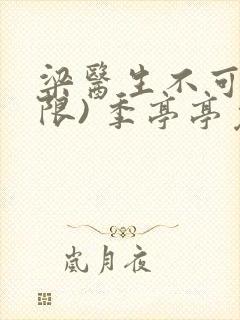 梁醫生不可
限) 季亭亭
嵐月夜